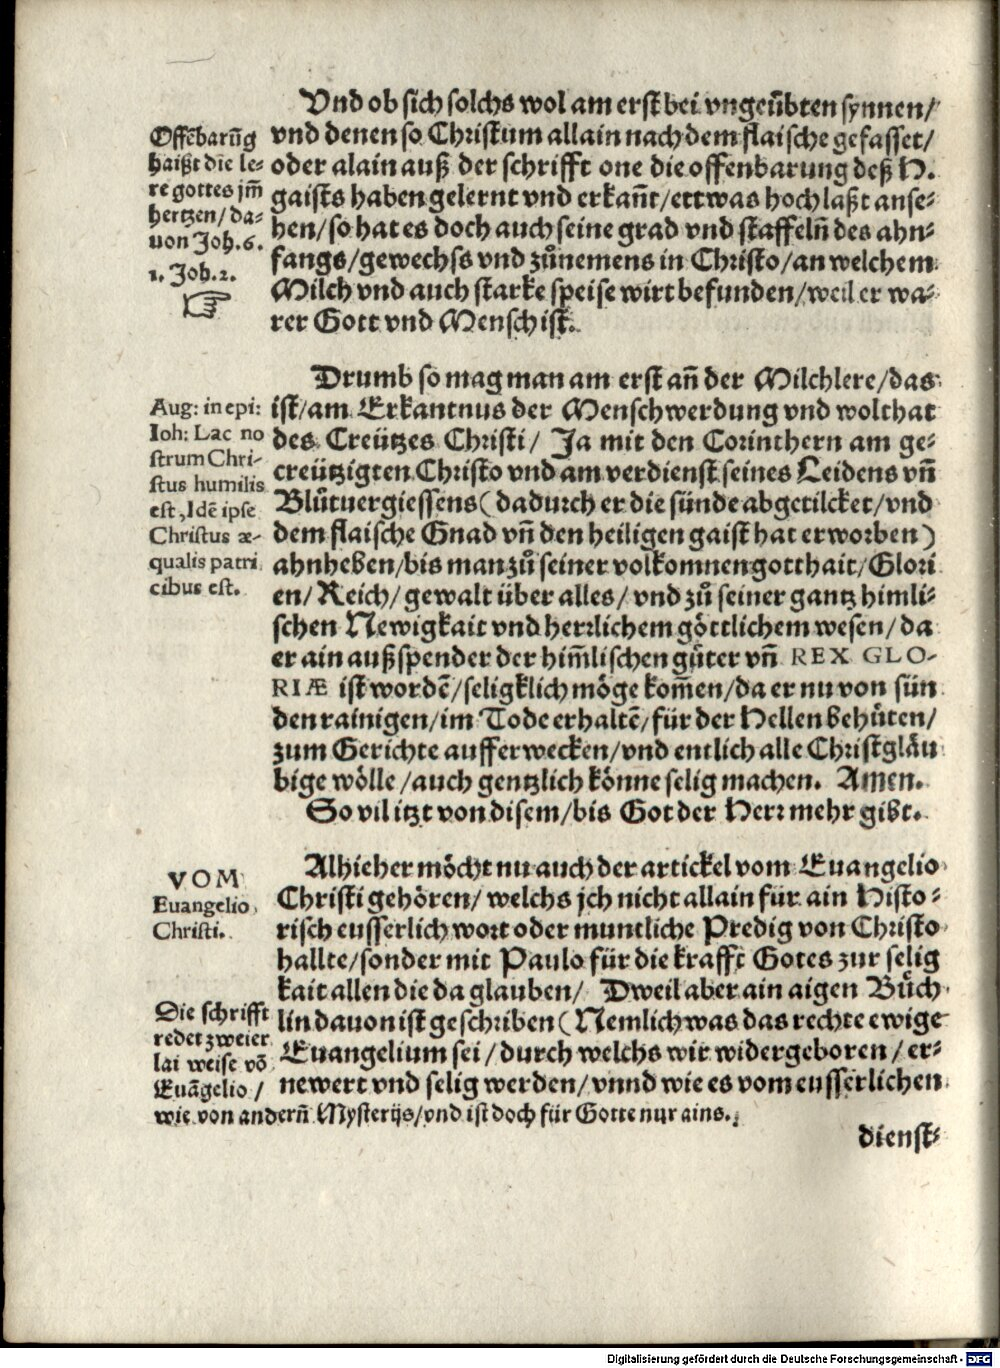 Vnd ob sich solchs wol am erst bei vngeůbten synnen/
vnd denen so Christum allain nach dem flaische gefasset/
oder alain auß der schrifft one die offenbarung deß H.
gaists haben gelernt vnd erkañt/ettwas hoch laßt anse-
hen/so hat es doch auch seine grad vnd staffelñ des ahn-
fangs/gewechss vnd zůnemens in Christo/an welchem
Milch vnd auch starke speise wirt befunden/weil er wa-
rer Gott vnd Mensch ist.
Offēbarūg
haißt die le-
re gottes jm̄
hertzen/da-
uon Joh.6.
1. Joh.2.
Drumb so mag man am erst an̄ der Milchlere/das
ist/am Erkantnus der Menschwerdung vnd wolthat
des Creützes Christi/ Ja mit den Corinthern am ge-
creützigten Christo vnd am verdienst seines Leidens vn̄
Blůtuergiessens(dadurch er die sünde abgetilcket/vnd
dem flaische Gnad vn̄ den heiligen gaist hat erworben)
ahnheben/bis man zů seiner volkomnen gotthait/Glori
en/Reich/gewalt über alles/vnd zů seiner gantz himli-
schen Newigkait vnd herrlichem göttlichem wesen/da
er ain außspender der him̄lischen gůter vn̄ REX GLO-
RIÆ ist wordē/seligklich möge kom̄en/da er nu von sün
den rainigen/im Tode erhaltē/für der Hellen behůten/
zum Gerichte aufferwecken/vnd entlich alle Christgläu
bige wölle/auch gentzlich könne selig machen. Amen.
So vil itzt von disem/bis Got der Herr mehr gibt.
Aug: in epi:
Ioh: Lac no
strum Chri-
stus humilis
est, Idē ipse
Christus æ-
qualis patri
cibus est.
Alhieher möcht nu auch der artickel vom Euangelio
Christi gehören/welchs jch nicht allain für ain Histo-
risch eusserlich wort oder muntliche Predig von Christo
hallte/sonder mit Paulo für die krafft Gotes zur selig
kait allen die da glauben/ Dweil aber ain aigen Bůch
lin dauon ist geschriben(Nemlich was das rechte ewige
Euangelium sei/durch welchs wir widergeboren/er-
newert vnd selig werden/vnnd wie es vom eusserlichen
VOM
Euangelio
Christi.
Die schrifft
redet zweier
lai weise vō
Euāgelio/
wie von andern̄ Mysterijs/vnd ist doch für Gotte nur ains.
dienst-
Digitalisierung gefördert durch die Deutsche Forschungsgemeinschaft - DFG